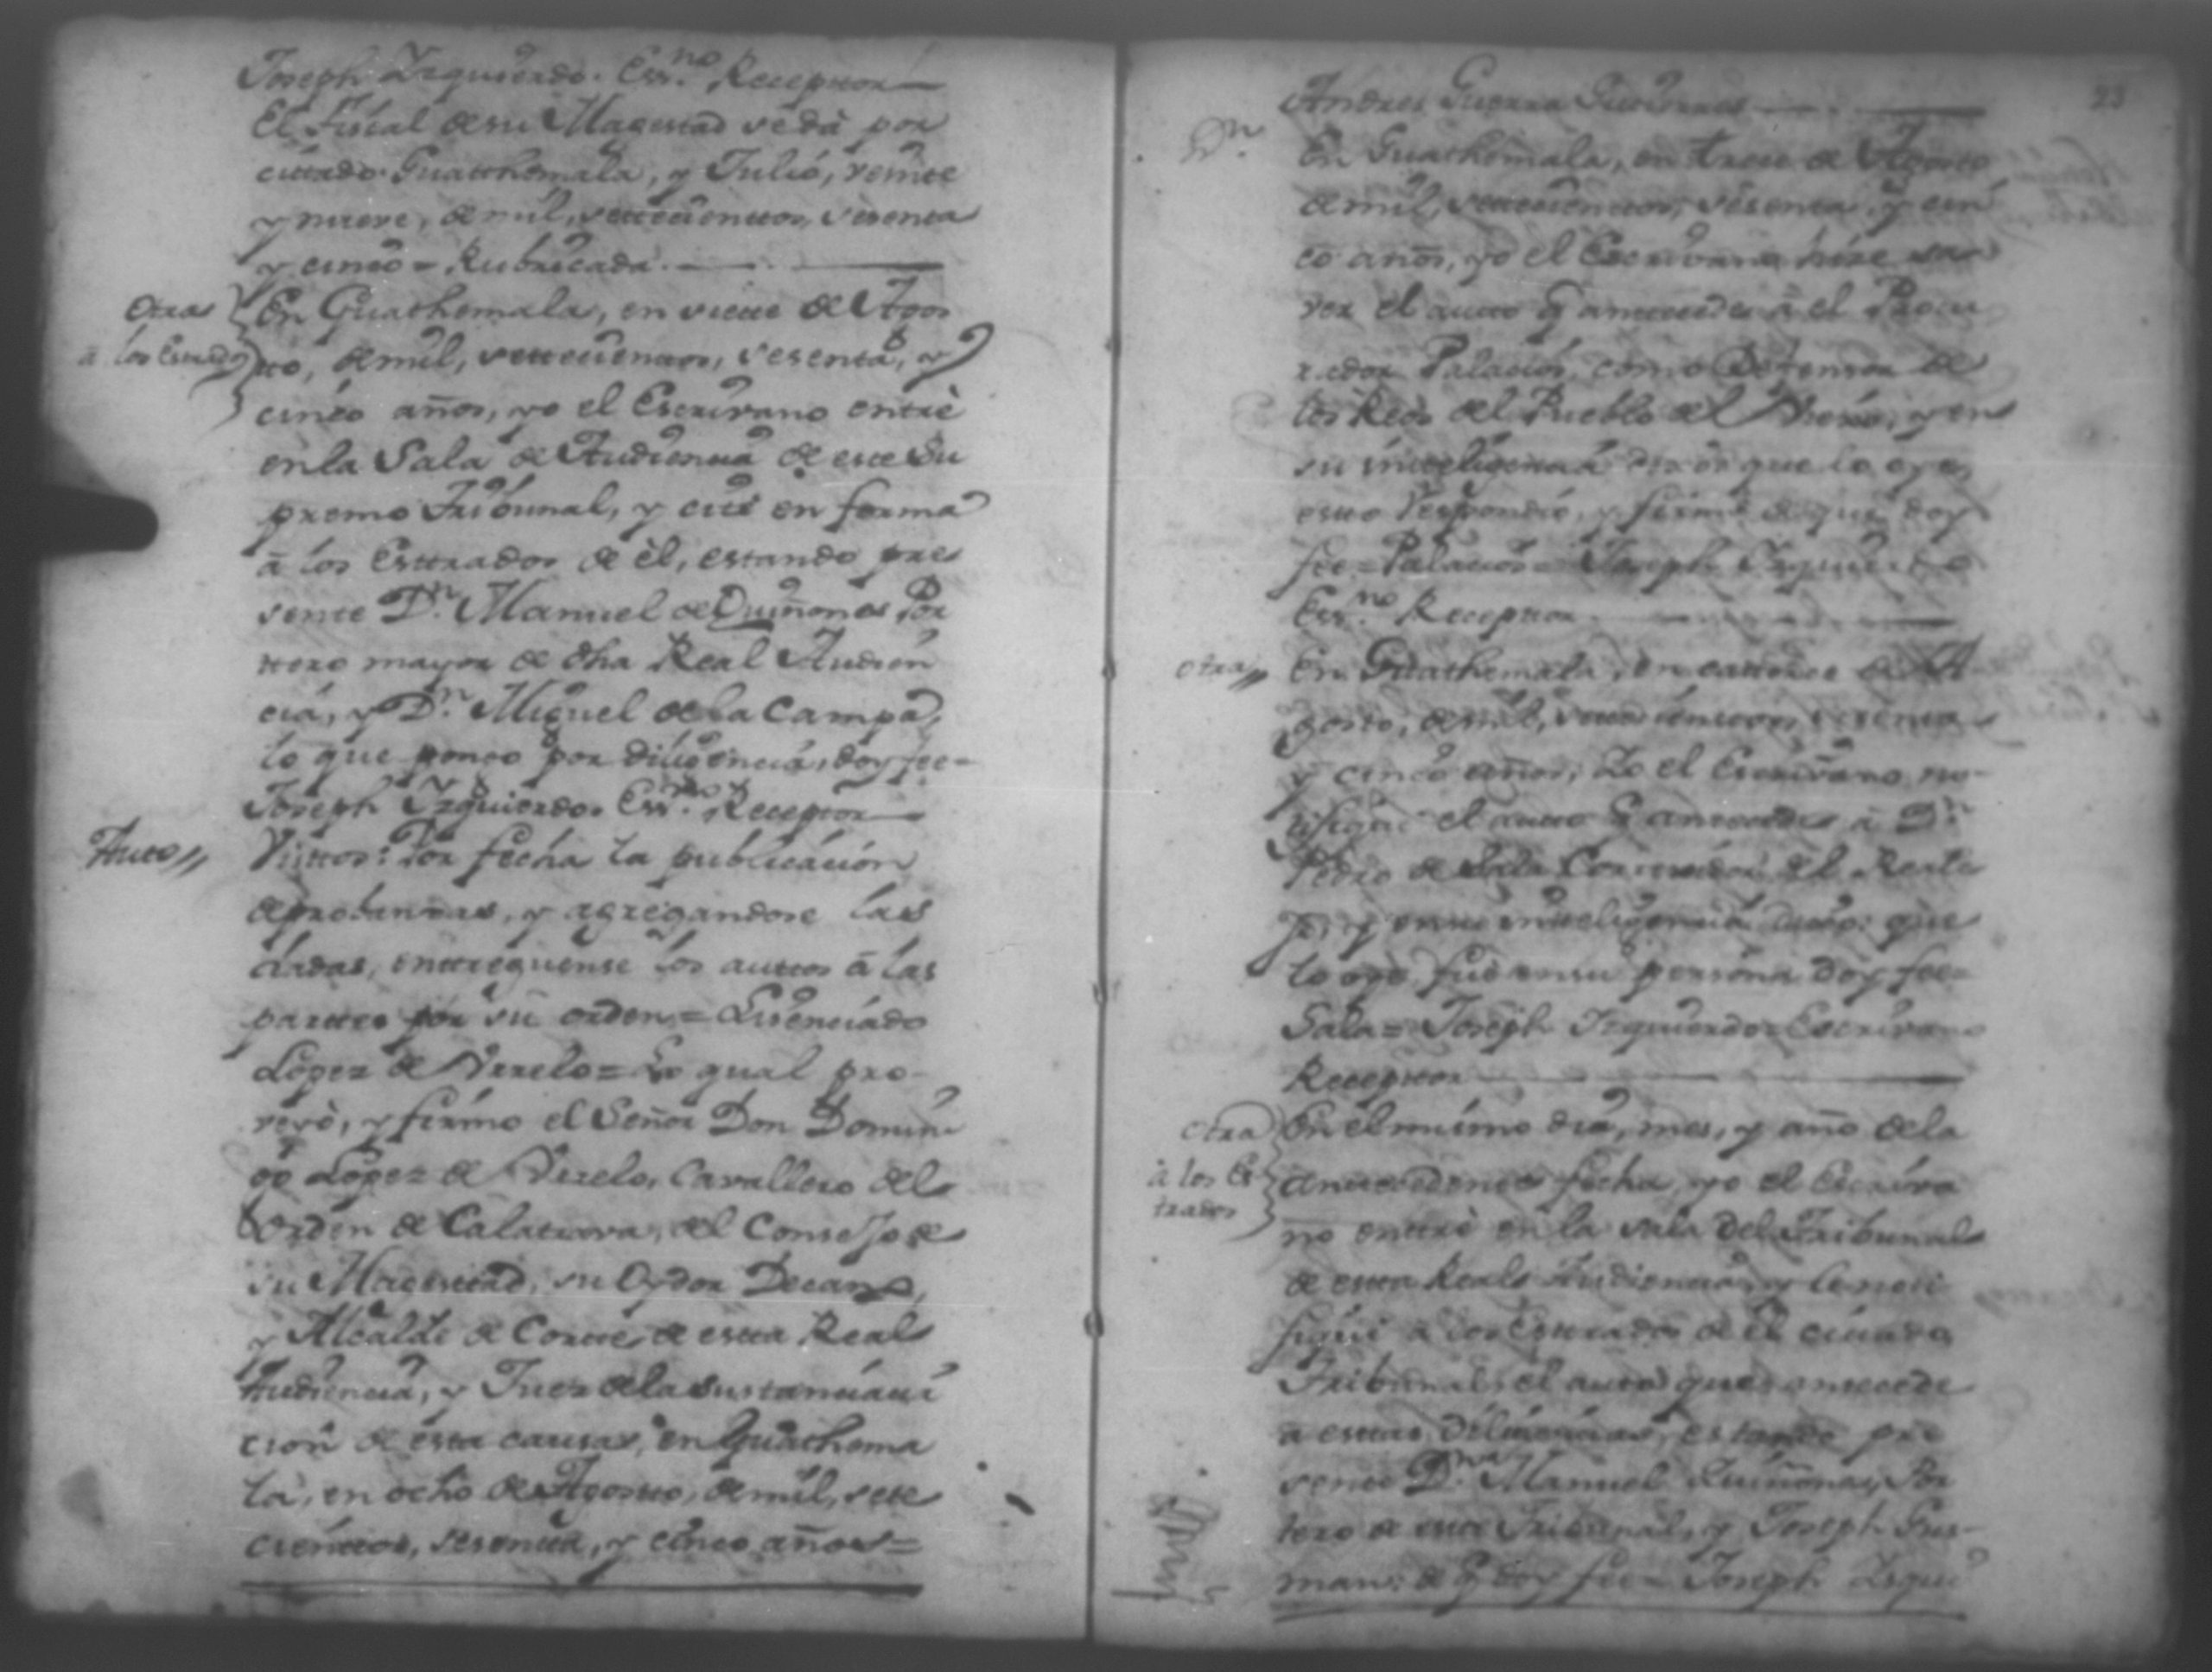 Joseph Yzquierdo. Ess.no Receptor
El Fiscal de su Magestad se dà por
cittado Guatthemala, y Julió, veinte
y nueve, de mil, settecienttos, sesenta
y cinco = Rubricada.
Otra
à los Estrados
En Guathemala, en siette de Agos
tto, de mil, settecienttos, sesenta, y
cinco años, yo el Escrivano entrè
en la Sala de Audiencia de este Su
premo Tribunal, y citè en forma
à los Esttrados de èl, estando pre
sente D.n Manuel de Quiñones Por
ttero mayor de dha Real Audien
cia, y D.n Miguel de la Campa,
lo que pongo por diligencia, doy fee =
Joseph Yzquierdo. Ess.no Receptor
Autto
Visttos: Por fecha la publicación
de probanzas, y agregandose las
dadas, enttreguense los auttos à las
parttes por su orden = Lisenciado
López de Vrrelo = Lo qual pro-
veyò, y firmo el Señor Don Domin
go López de Vrrelo, Cavallero del
Orden de Calatrava, del Consejo de
su Magesttad, su Oydor Decano,
y Alcalde de Cortte, de estta Real
Audiencia, y Juez de la sustanciaci
cion de esta causa, en Guathema
la, en ocho de Agostto, de mil, sete
cienttos, sesentta, y cinco años =
23
Andres Guerra Gutierres
En Guathemala, en trese de Agosto
de mil, settecienttos, sesenta, y cin
co años, yo el Escrivano hize sa
ver el autto q antecede à el Procu
rador Palacios, como Defensor de
los Reos del Pueblo del y en
su intteligencia dixo: que lo oye,
estto respondió, y firmó de que doy
fee = Palacios = Joseph Yzquierdo
Ess.no Receptor
otra
En Guathemala, en cattorce de A
gosto, de mil, settecienttos, sesenta
y cinco años, Yo el Escrivano no-
tifiqué el autto q antecede à D.n
Pedro de Sala Corregidor del Real
y en su intteligencia dixo: que
lo oye, fue en su persona doy fee =
Sala = Joseph Yzquierdo = Escrivano
Receptor
Otra
à los Es
trados
En el mismo dia, mes, y año de la
anttecedente fecha, yo el Escriva
no enttrè en la sala del Tribunal
de estta Real Audiencia, y le noti
fiqué à los Esttrados de el citado
Tribunal el autto que antecede
a esttas diligencias, estando pre
sente D.n Manuel Quiñones, Por
tero de estte Tribunal, y Joseph Gus-
man: de q doy fee = Joseph Yzqui